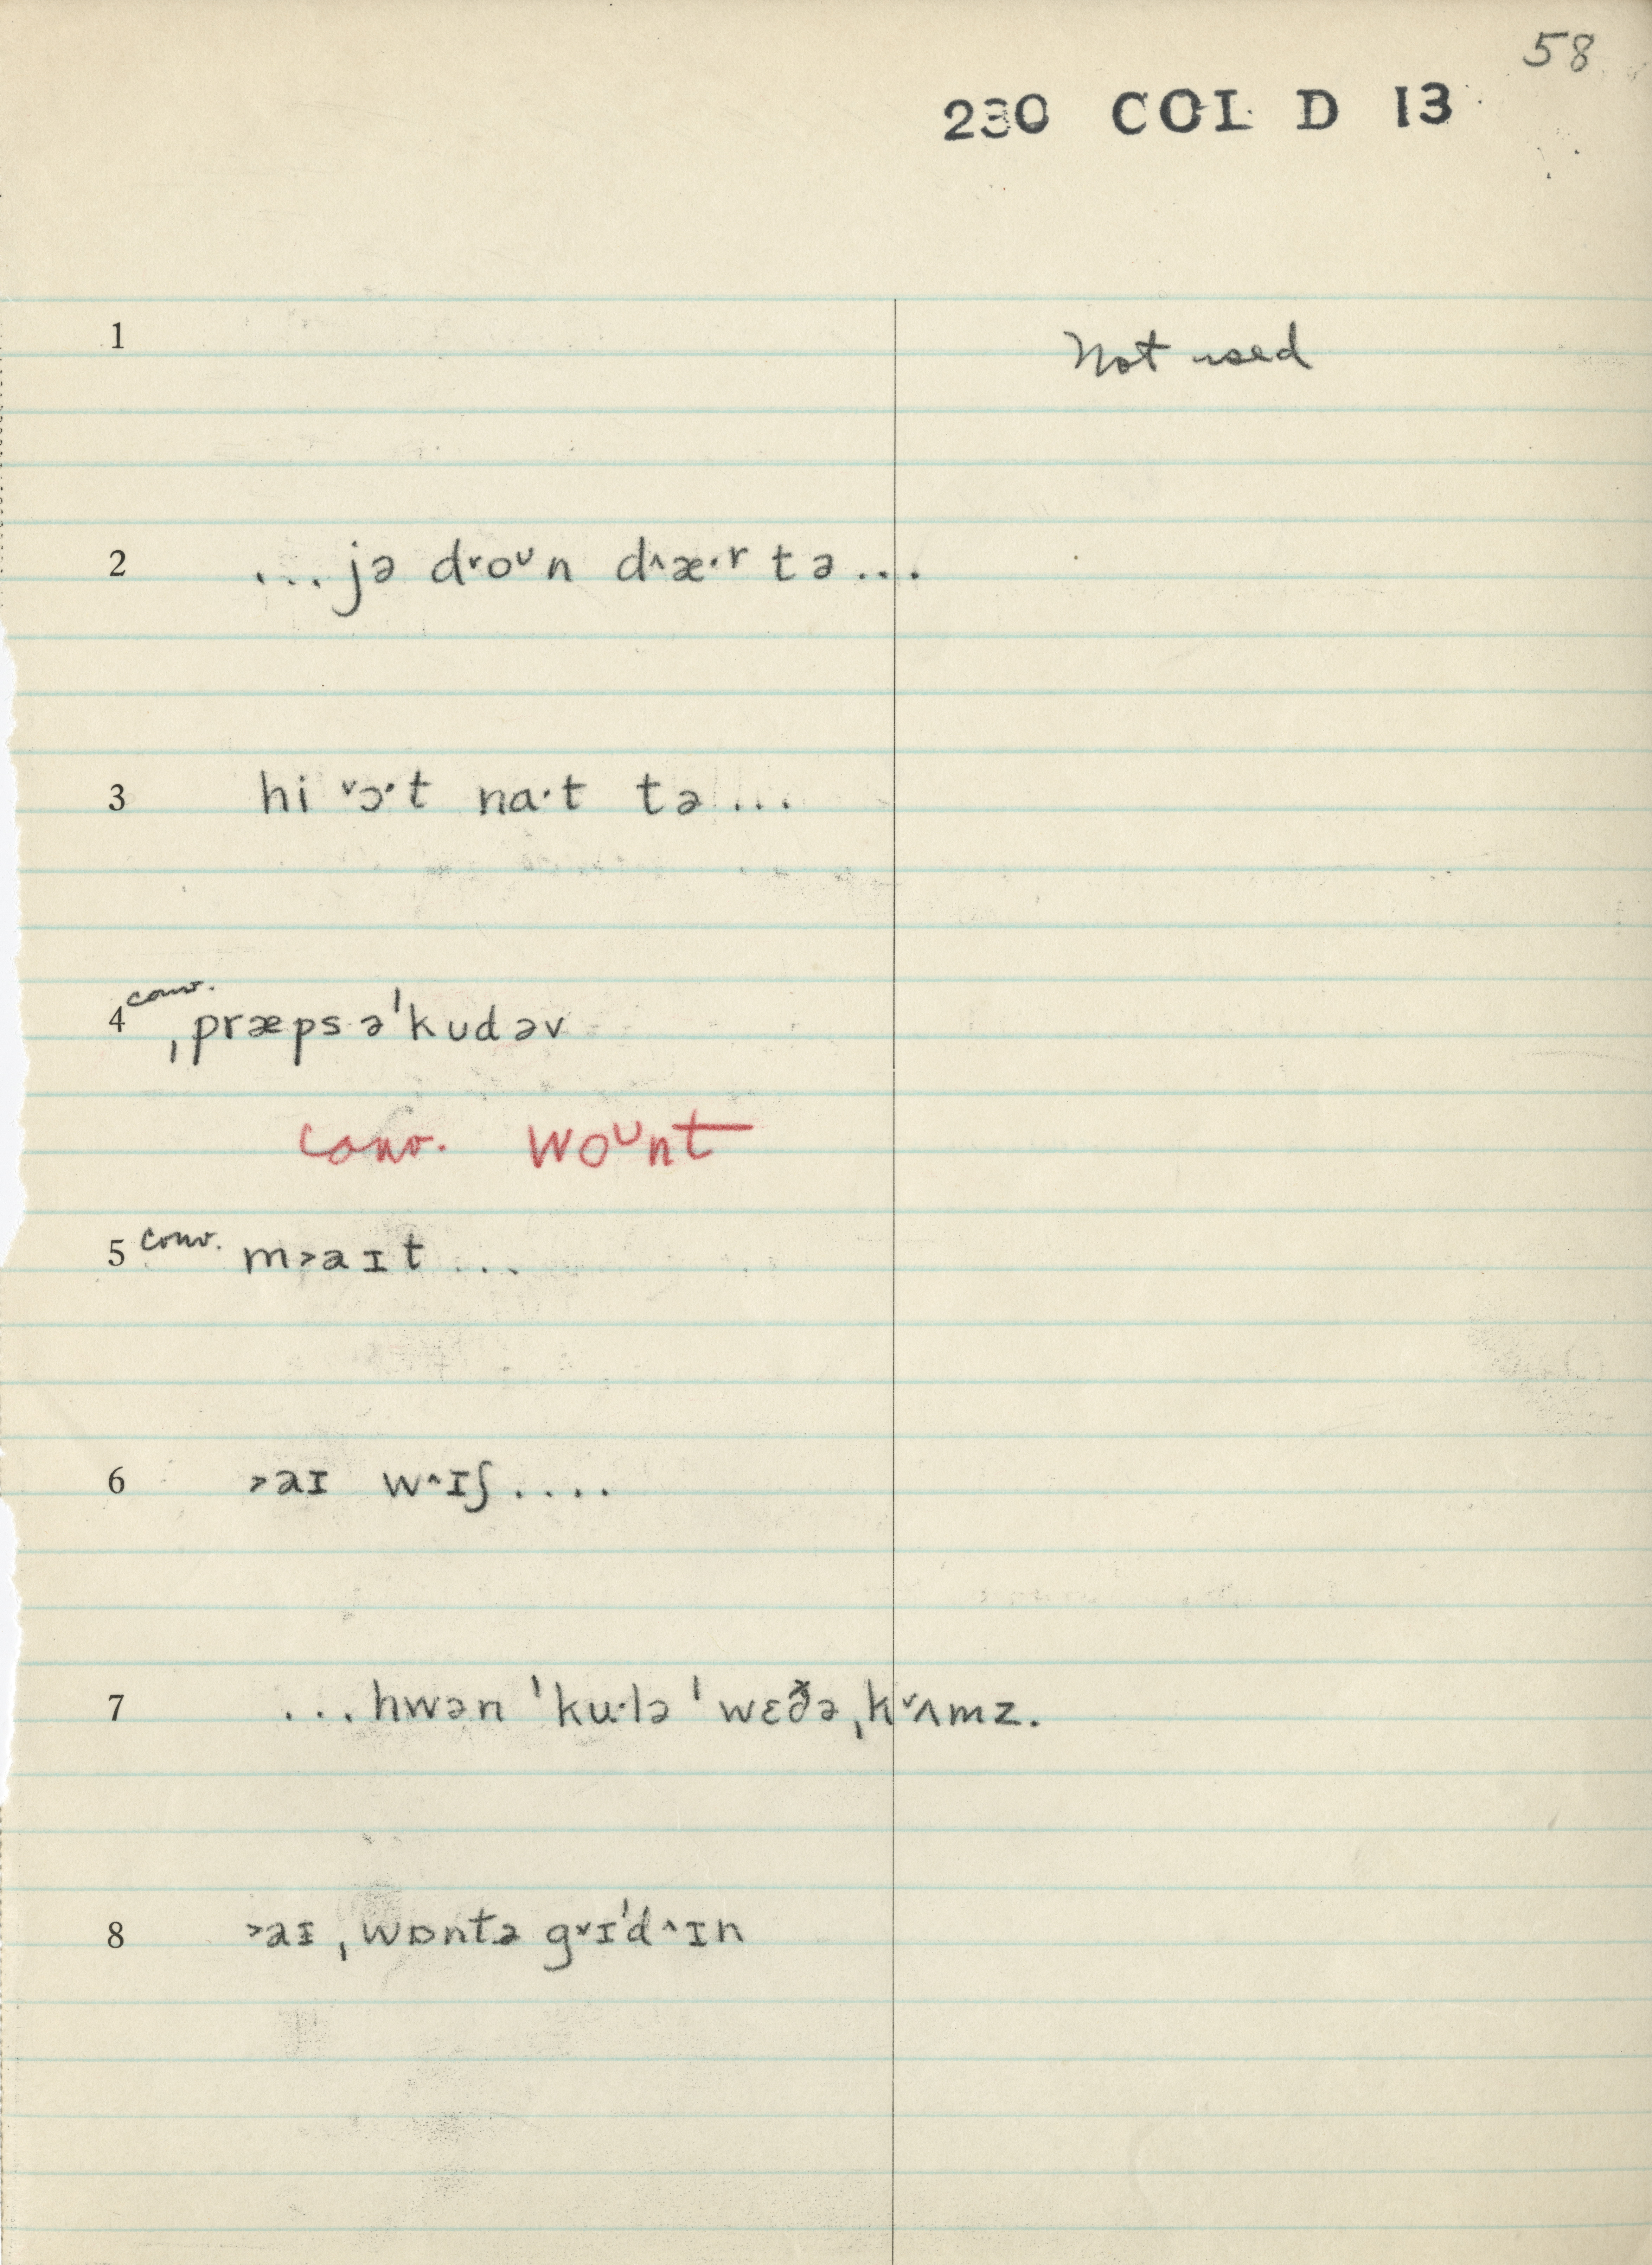 58
230 COL D 13
1 Not used
2 ...jə d˅oᴜn d˄æ·r tə...
3 hi ˅ɔ·t na·t tə...
4 conv. ˌpræps ə'kudəv
conv. woᴜnt
5 conv. m˃aɪt ...
6 ˃aɪ w˄ɪʃ....
7 ...hwən 'ku·lə 'wɛðə ˌk˅ʌmz.
8 ˃aɪ ˌwɒntə g˅ɪ'd˄ɪn